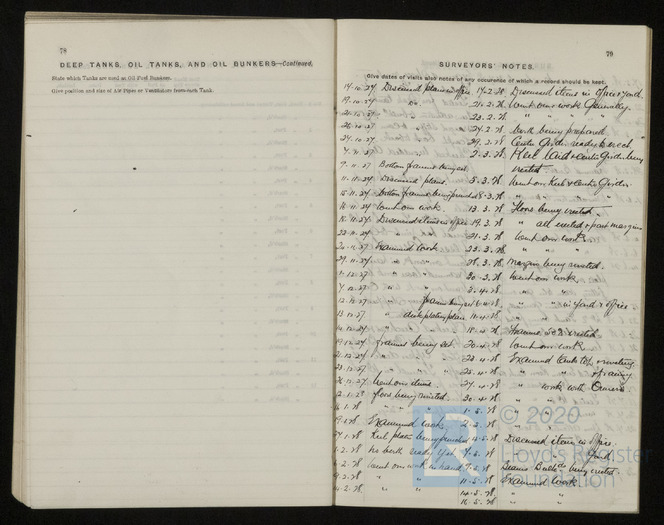 78
DEEP TANKS, OIL TANKS, AND OIL BUNKERS—Continued.
State which Tanks are used as Oil Fuel Bunkers.
Give position and size of Air Pipes or Ventilators from each Tank.
79
SURVEYORS' NOTES.
Give dates of visits also notes of any occurence of which a record should be kept.
17.10.27 Discussed plans in office. 17.2.28 Discussed items in office & yard.
19.10.27 21.2.28 Went over work Generally
23.2.28 " " "
26.10.27 27.2.28 berth being prepared
29.2.28 Centre Girder ready to erect
2.3.28 Keel laid & Centre Girder being
erected
9.11.27 Bottom frames being set
11.11.27 Discussed plans. 5.3.28 Went over Keel & Centre Girder.
15.11.27 Bottom frames being 8.3.28 " " "
16.11.27 Went over work. 13.3.28 Floors being erected.
18.11.27 Discussed items in office 19.3.28 " all erected & part margins
22.11.27 21.3.28 Went over work
Examined work 23.3.28 " "
29.11.27 " " 28.3.28 Margins being riveted.
1.12.27 " " 30.3.28 Went over work
7.12.27 " 3.4.28 " "
12.12.27 " frames being set 6.4.28 " " in yard & office
13.12.27 " 11.4.28 " "
14.12.27 " " 18.4.28 Frames 50% erected
19.12.27 frames being set. 20.4.28 Went over work
21.12.27 " 23.4.28 Examined tank top & riveting
& framing
23.12.27 " " " 25.4.28 " "
Went over items 27.4.28 " work with Owners
floors being riveted 30.4.28 " "
1.5.28 " "
Examined work. 2.5.28 " "
Keel plates being punched 4.5.28 Discussed items in office.
no berth ready yet 7.5.28 " " yard
Went over work in hand 9.5.28 being erected.
" " 11.5.28 Examined work
" " 14.5.28 " "
16.5.28 " "
© 2020
Lloyd's Register
Foundation
LR